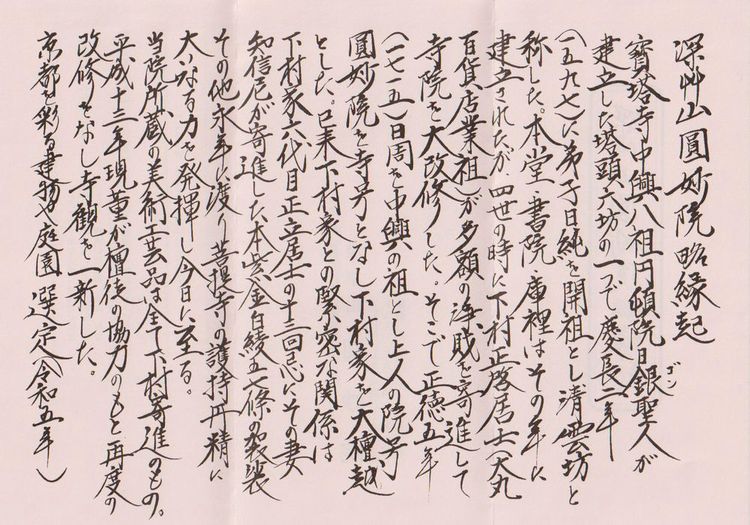 深艸山圓妙院略縁起
寶塔寺中興八祖円頓院日銀聖人が
ゴン
建立した塔頭六坊の一つで慶長二年
(一五九七)に弟子日純を開祖とし清雲坊と
称した。本堂、書院、庫裡はその年に
建立されたが、四世の時に下村正啓居士(大丸
百貨店業祖)が多額の浄財を寄進して
寺院を大改修した。そこで正徳五年
(一七一五)日周を中興の祖とし上人の院号
圓妙院を寺号となし下村家を大檀越
とした。以来下村家との緊密な関係は
下村家六代目正立居士の十三回忌にその妻
知信尼が寄進した本紫金白綾五七條の袈裟
その他永年に渡り菩提寺の護持丹精に
大いなる力を発揮し今日に至る。
当院所蔵の美術工芸品は全て下村寄進のもの。
平成十二年現董が檀徒の協力のもと再度の
改修をなし寺観を一新した。
京都を彩る建物や庭園 選定(令和五年)